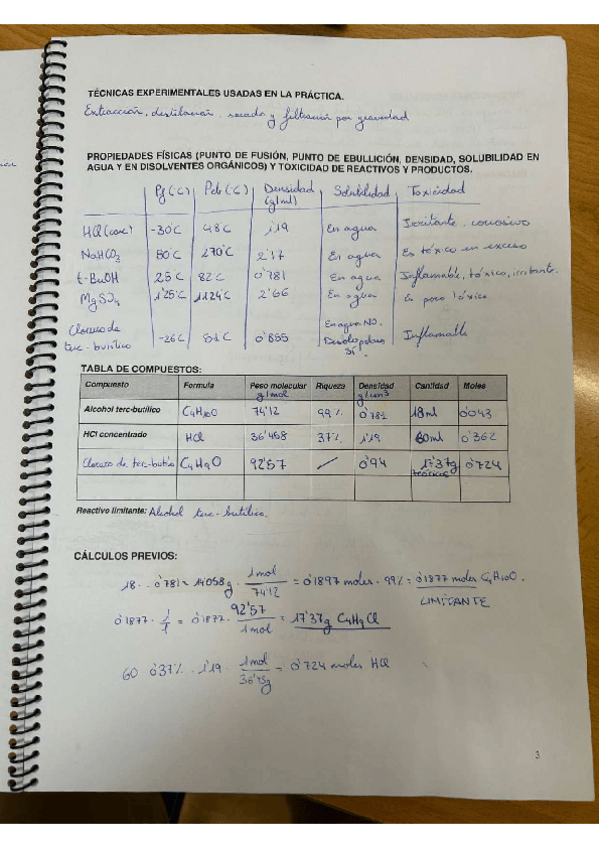 TÉCNICAS EXPERIMENTALES USADAS EN LA PRÁCTICA.
Extracción, destilación, secado y filtración por gravedad
PROPIEDADES FÍSICAS (PUNTO DE FUSIÓN, PUNTO DE EBULLICIÓN, DENSIDAD, SOLUBILIDAD EN
AGUA Y EN DISOLVENTES ORGÁNICOS) Y TOXICIDAD DE REACTIVOS Y PRODUCTOS.
Pf (ºC) Peb (ºC) Densidad (g/ml) Solubilidad Toxicidad
HCl (conc) -30ºC 48ºC 1'19 En agua Irritante, corrosivo
NaHCO3 80ºC 270ºC 2'17 En agua Es tóxico en exceso
t-BuOH 25ºC 82ºC 0'781 En agua Inflamable, tóxico, irritante.
MgSO4 1'25ºC 1124ºC 2'66 En agua Es poco tóxico
Cloruro de terc-butilo -26ºC 51ºC 0'855 En agua NO. Sí. Inflamable
TABLA DE COMPUESTOS:
Compuesto Formula Peso molecular g/mol Riqueza Densidad g/cm3 Cantidad Moles
Alcohol terc-butílico C4H10O 74'12 99% 0'781 18ml 0'043
HCl concentrado HCl 36'458 37% 1'19 60ml 0'362
Cloruro de terc-butilo C4H9O 92'57 0'94 17'37g teóricos 0'724
Reactivo limitante: Alcohol terc-butílico.
CÁLCULOS PREVIOS:
18 · 0'781 = 14'058g · 1mol/74'12 = 0'1897 moles · 99% = 0'1877 moles C4H10O.
LIMITANTE
0'1877 · 1/1 = 0'1877 · 92'57/1mol = 17'37g C4H9Cl
60 0'37% · 1'19 · 1mol/36'45g = 0'724 moles HCl
3